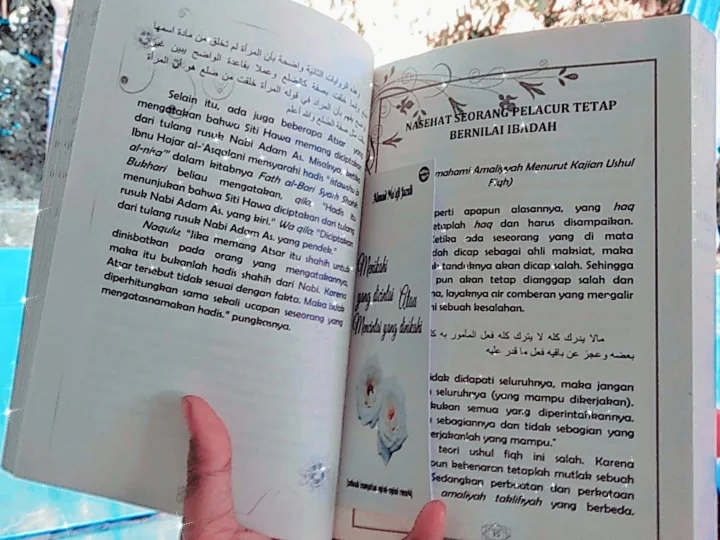 وهذه الروايات الثانية واضحة بأن المرأة لم تخلق من مادة اسمها
Selain itu, ada juga beberapa Atsar yang
mengatakan bahwa Siti Hawa memang diciptakan
dari tulang rusuk Nabi Adam As. Misalnya, ketika
Ibnu Hajar al-'Asqolani mensyarahi hadis "istaushu bi
al-nisa'" dalam kitabnya Fath al-Bari Syarh Shahih
Bukhari beliau mengatakan, qila: "Hadis itu
menunjukan bahwa Siti Hawa diciptakan dari tulang
rusuk Nabi Adam As. yang kiri." Wa qila: "Diciptakan
dari tulang rusuk Nabi Adam As. yang pendek."
Naqulu: "Jika memang Atsar itu shahih untuk
dinisbatkan pada orang yang mengatakannya,
maka itu bukanlah hadis shahih dari Nabi. Karena
Atsar tersebut tidak sesuai dengan fakta. Maka tidak
diperhitungkan sama sekali ucapan seseorang yang
mengatasnamakan hadis." pungkasnya.
NASEHAT SEORANG PELACUR TETAP
BERNILAI IBADAH
mahami Amaliyyah Menurut Kajian Ushul
Fiqh)
perti apapun alasannya, yang haq
etaplah haq dan harus disampaikan.
Ketika ada seseorang yang di mata
dah dicap sebagai ahli maksiat, maka
tanduknya akan dicap salah. Sehingga
pun akan tetap dianggap salah dan
na, layaknya air comberan yang mengalir
ni sebuah kesalahan.
مالا يدرك كله لا يترك كله فعل المأمور به
بعضه وعجز عن باقيه فعل ما قدر عليه
idak didapati seluruhnya, maka jangan
seluruhnya (yang mampu dikerjakan).
kukan semua yang diperintahkannya.
sebagiannya dan tidak sebagian yang
erjakanlah yang mampu."
teori ushul fiqh ini salah. Karena
pun kebenaran tetaplah mutlak sebuah
Sedangkan perbuatan dan perkataan
amaliyah taklifiyah yang berbeda.
Menikahi
yang dicintai Atau
Mencintai yang dinikahi